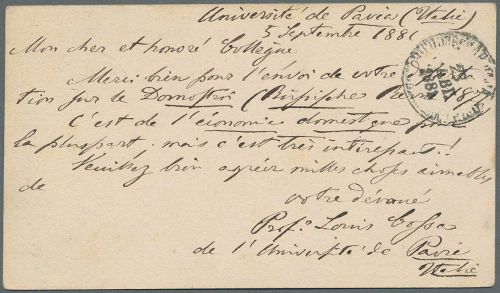 Université de Pavia (Italie)
5 Septembre 1881
Mon cher et honoré Collègue
Merci bien pour l'envoi de votre
tion sur le Domostroi (
C'est de l'économie domestique pour
la pluspart, mais c'est très intéressant!
Veuillez bien agréer milles choses aimables
de
votre dévoué
Prof. Louis Cossa
de l'Université de Pavie
Italie